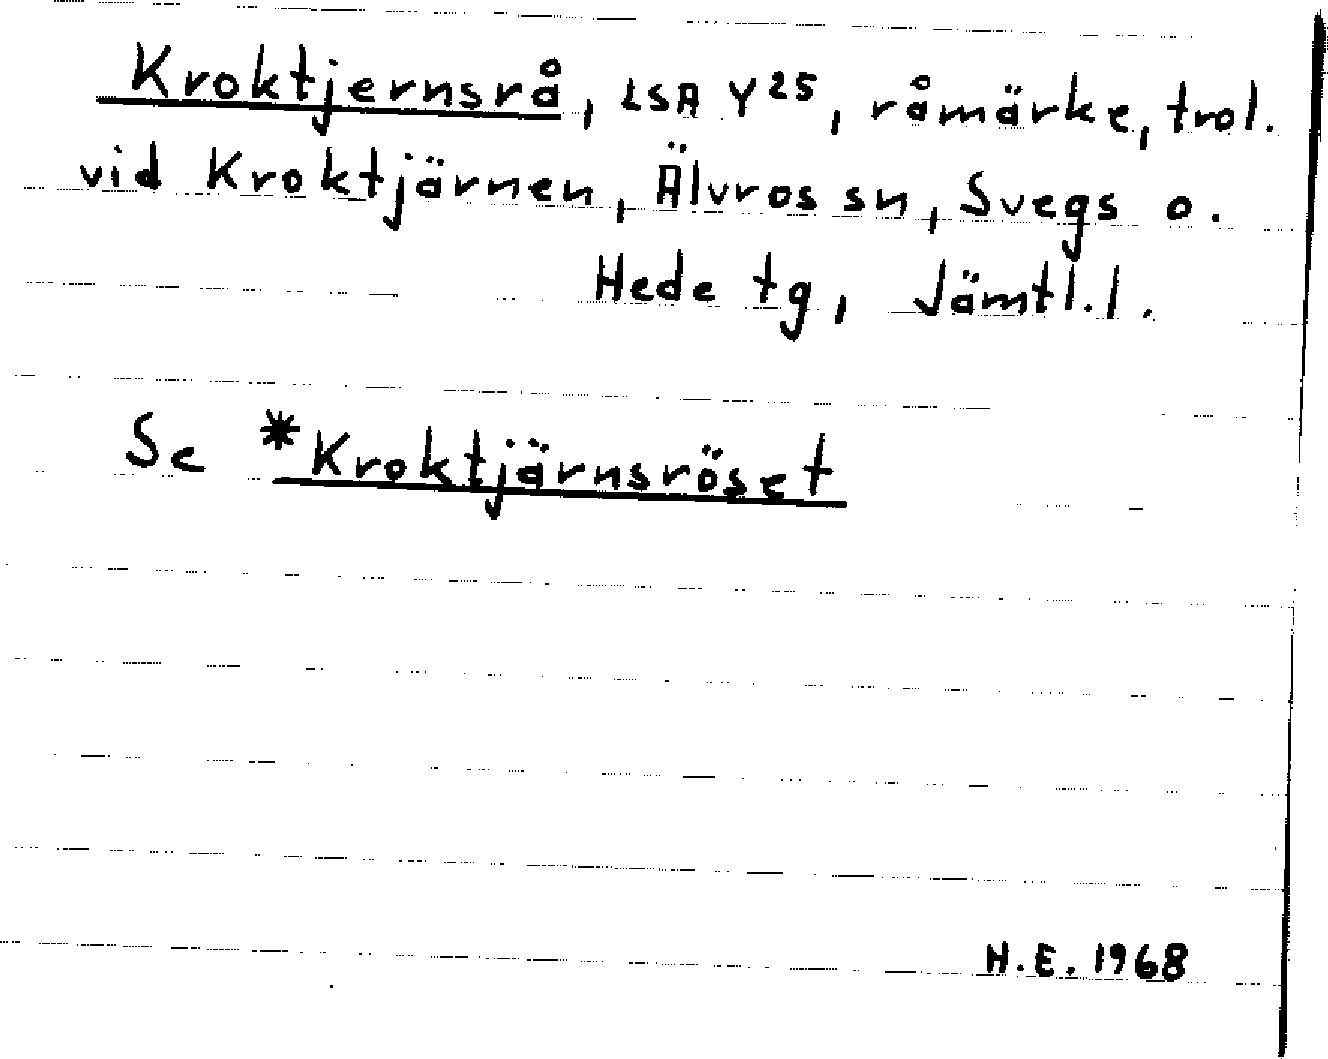 Kroktjernsrå, LSA Y25, råmärke, trol.
vid Kroktjärnen, Älvros sn, Svegs o.
Hede tg, Jämtl.l.
Se *Kroktjärnsröset
H.E. 1968